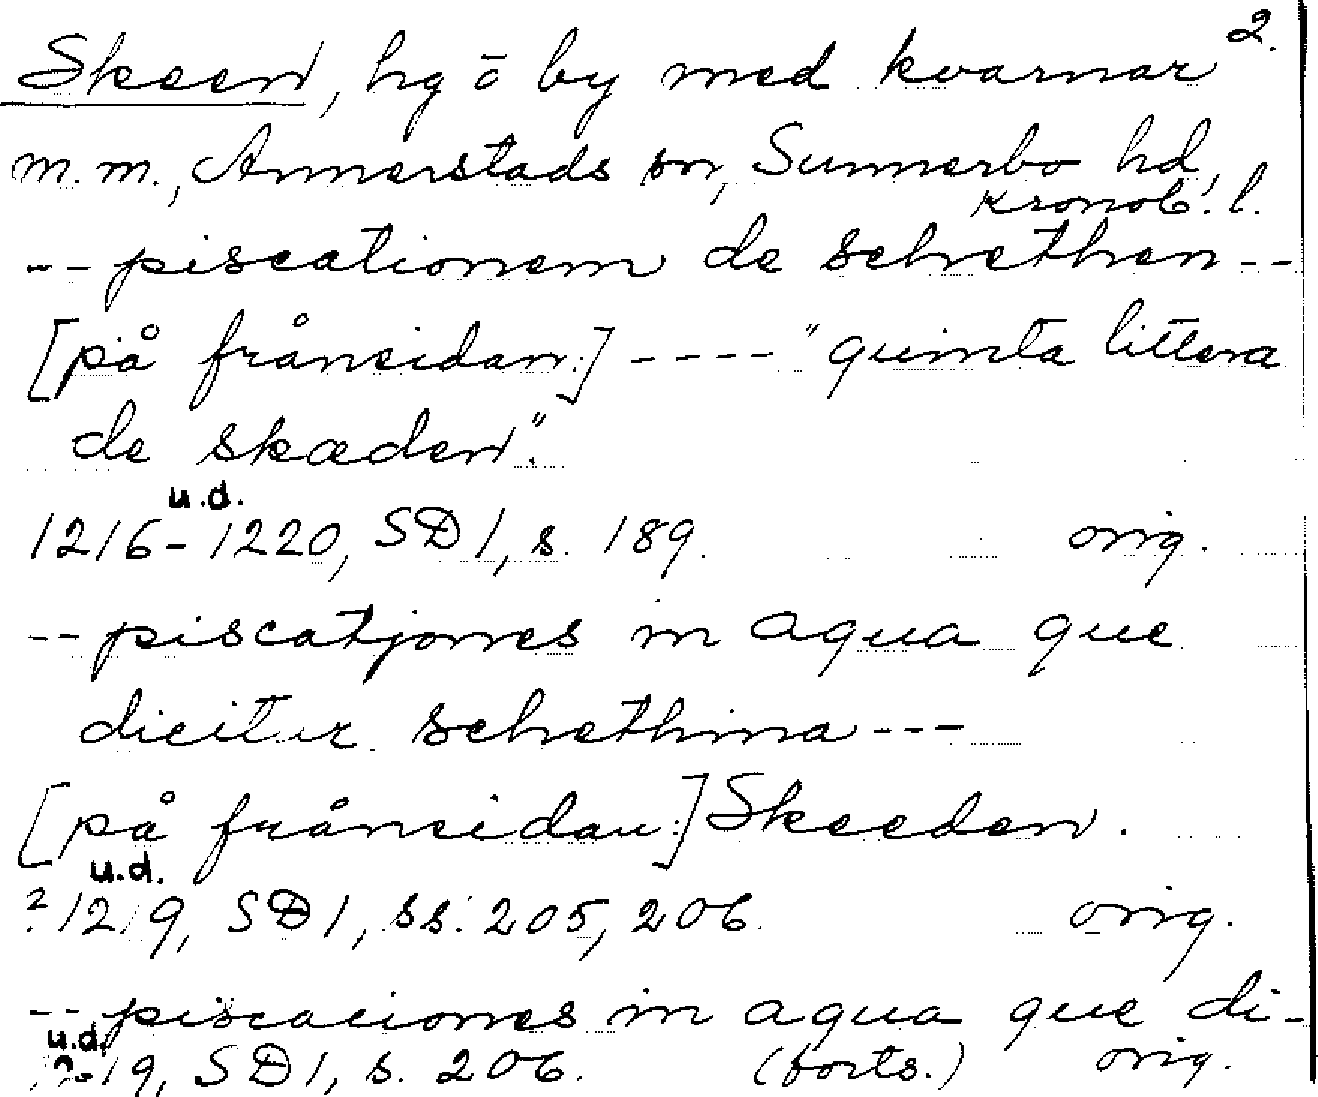 2.
Skeen, hg o by med kvarnar
m.m., Annerstads sn, Sunnerbo hd,
Kronob. l.
-- piscationem de schethen --
[på frånsidan:] ---- "quinta littera
de skæden".
u.d.
1216-1220, SD 1, s. 189. orig.
-- piscatjones in aqua que
dicitur schethina ---
[på frånsidan:] Skeeden.
u.d.
? 1219, SD 1, ss. 205, 206. orig.
-- piscaciones in aqua que di-
u.d.
1219, SD 1, s. 206. (forts.) orig.